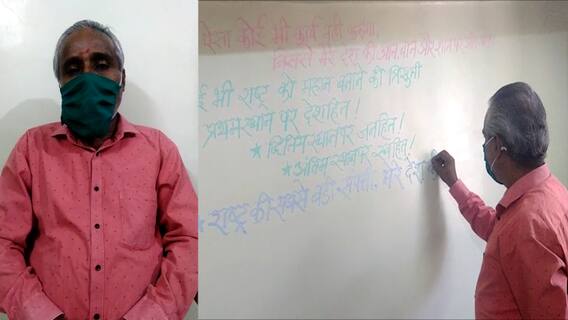 ऐसा कोई भी कार्य नहीं करूंगा,
जिससे मेरे देश की आन, बान और शान पर
ई भी राष्ट्र को महान बनाने की त्रिसुत्री
प्रथम स्थान पर देशहित!
★ द्वितिय स्थान पर जनहित!
★ अंतिम स्थान पर स्वहित!
★ राष्ट्र की सबसे बडी संपत्ती, मेरे देश